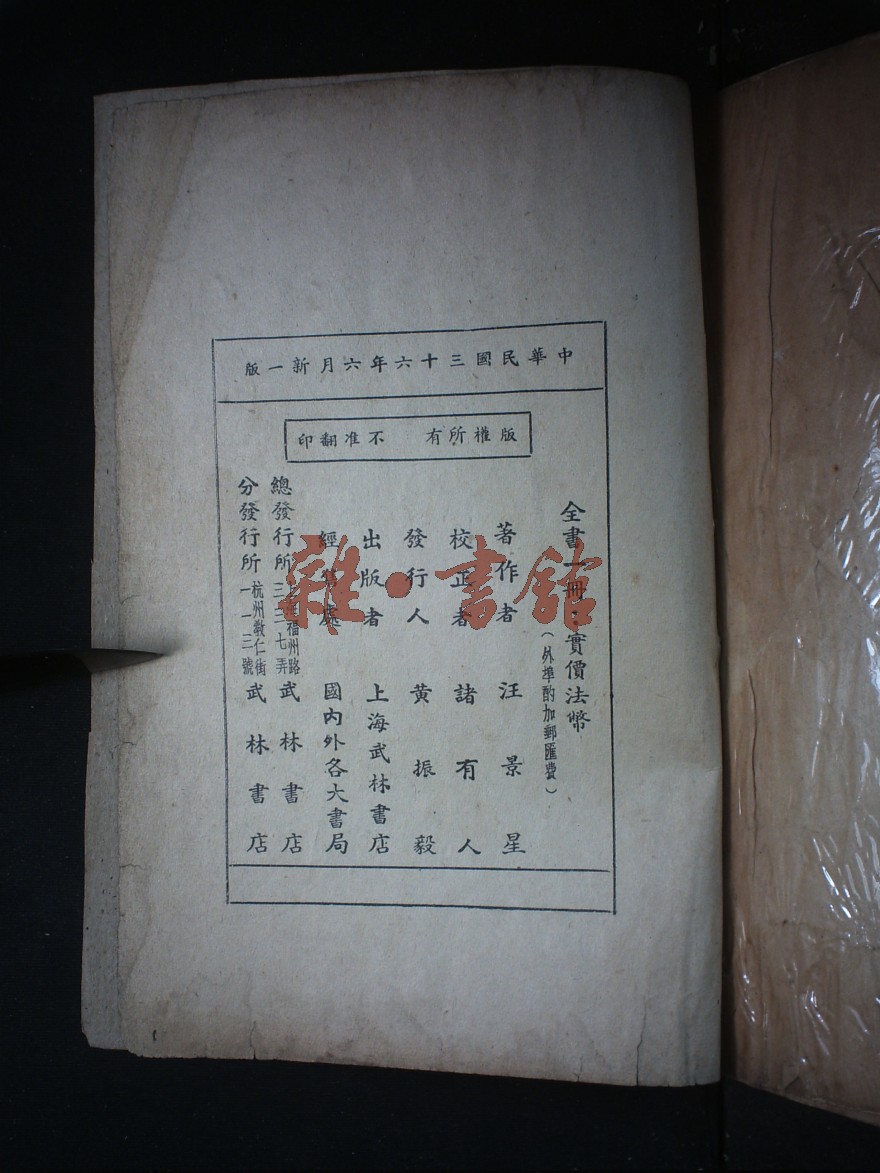 中華民國三十六年六月新一版
版權所有 不准翻印
全書一冊：實價法幣
（外埠酌加郵匯費）
著作者 汪景星
校正者 諸有人
發行人 黃振毅
出版者 上海武林書店
經售處 國內外各大書局
總發行所 上海福州路三三七弄 武林書店
分發行所 杭州教仁街一一三號 武林書店
雜·書館